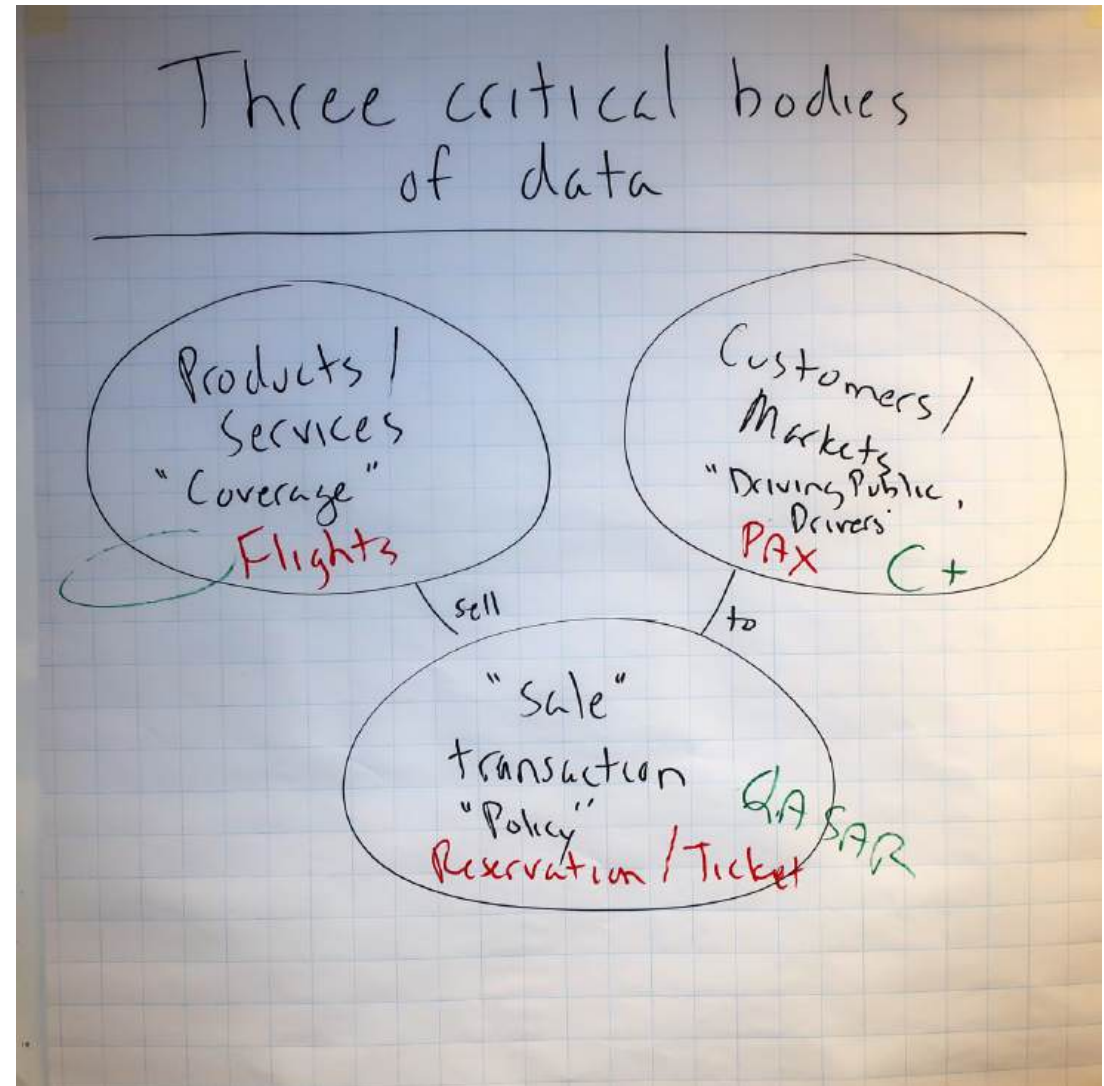 Three critical bodies
of data
Products /
Services
"Coverage"
Flights
Customers /
Markets
"Driving Public,
Drivers"
PAX
C+
sell
to
"Sale"
transaction
"Policy"
Reservation / Ticket
QASAR